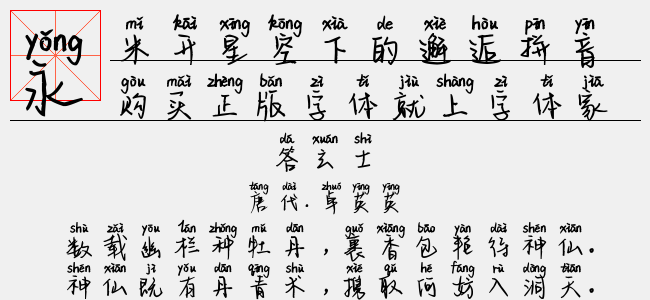 yǒng
永
mǐ kāi xīng kōng xià de xiè hòu pīn yīn
米开星空下的邂逅拼音
gòu mǎi zhèng bǎn zì tǐ jiù shàng zì tǐ jiā
购买正版字体就上字体家
dá xuán shì
答玄士
táng dài zhuó yīng yīng
唐代.卓英英
shù zǎi yōu lán zhǒng mǔ dān guǒ xiāng bāo yàn dài shén xiān
数载幽栏种牡丹,裹香包艳待神仙。
shén xiān jì yǒu dān qīng shù xié qǔ hé fáng rù dòng tiān
神仙既有丹青术,携取何妨入洞天。